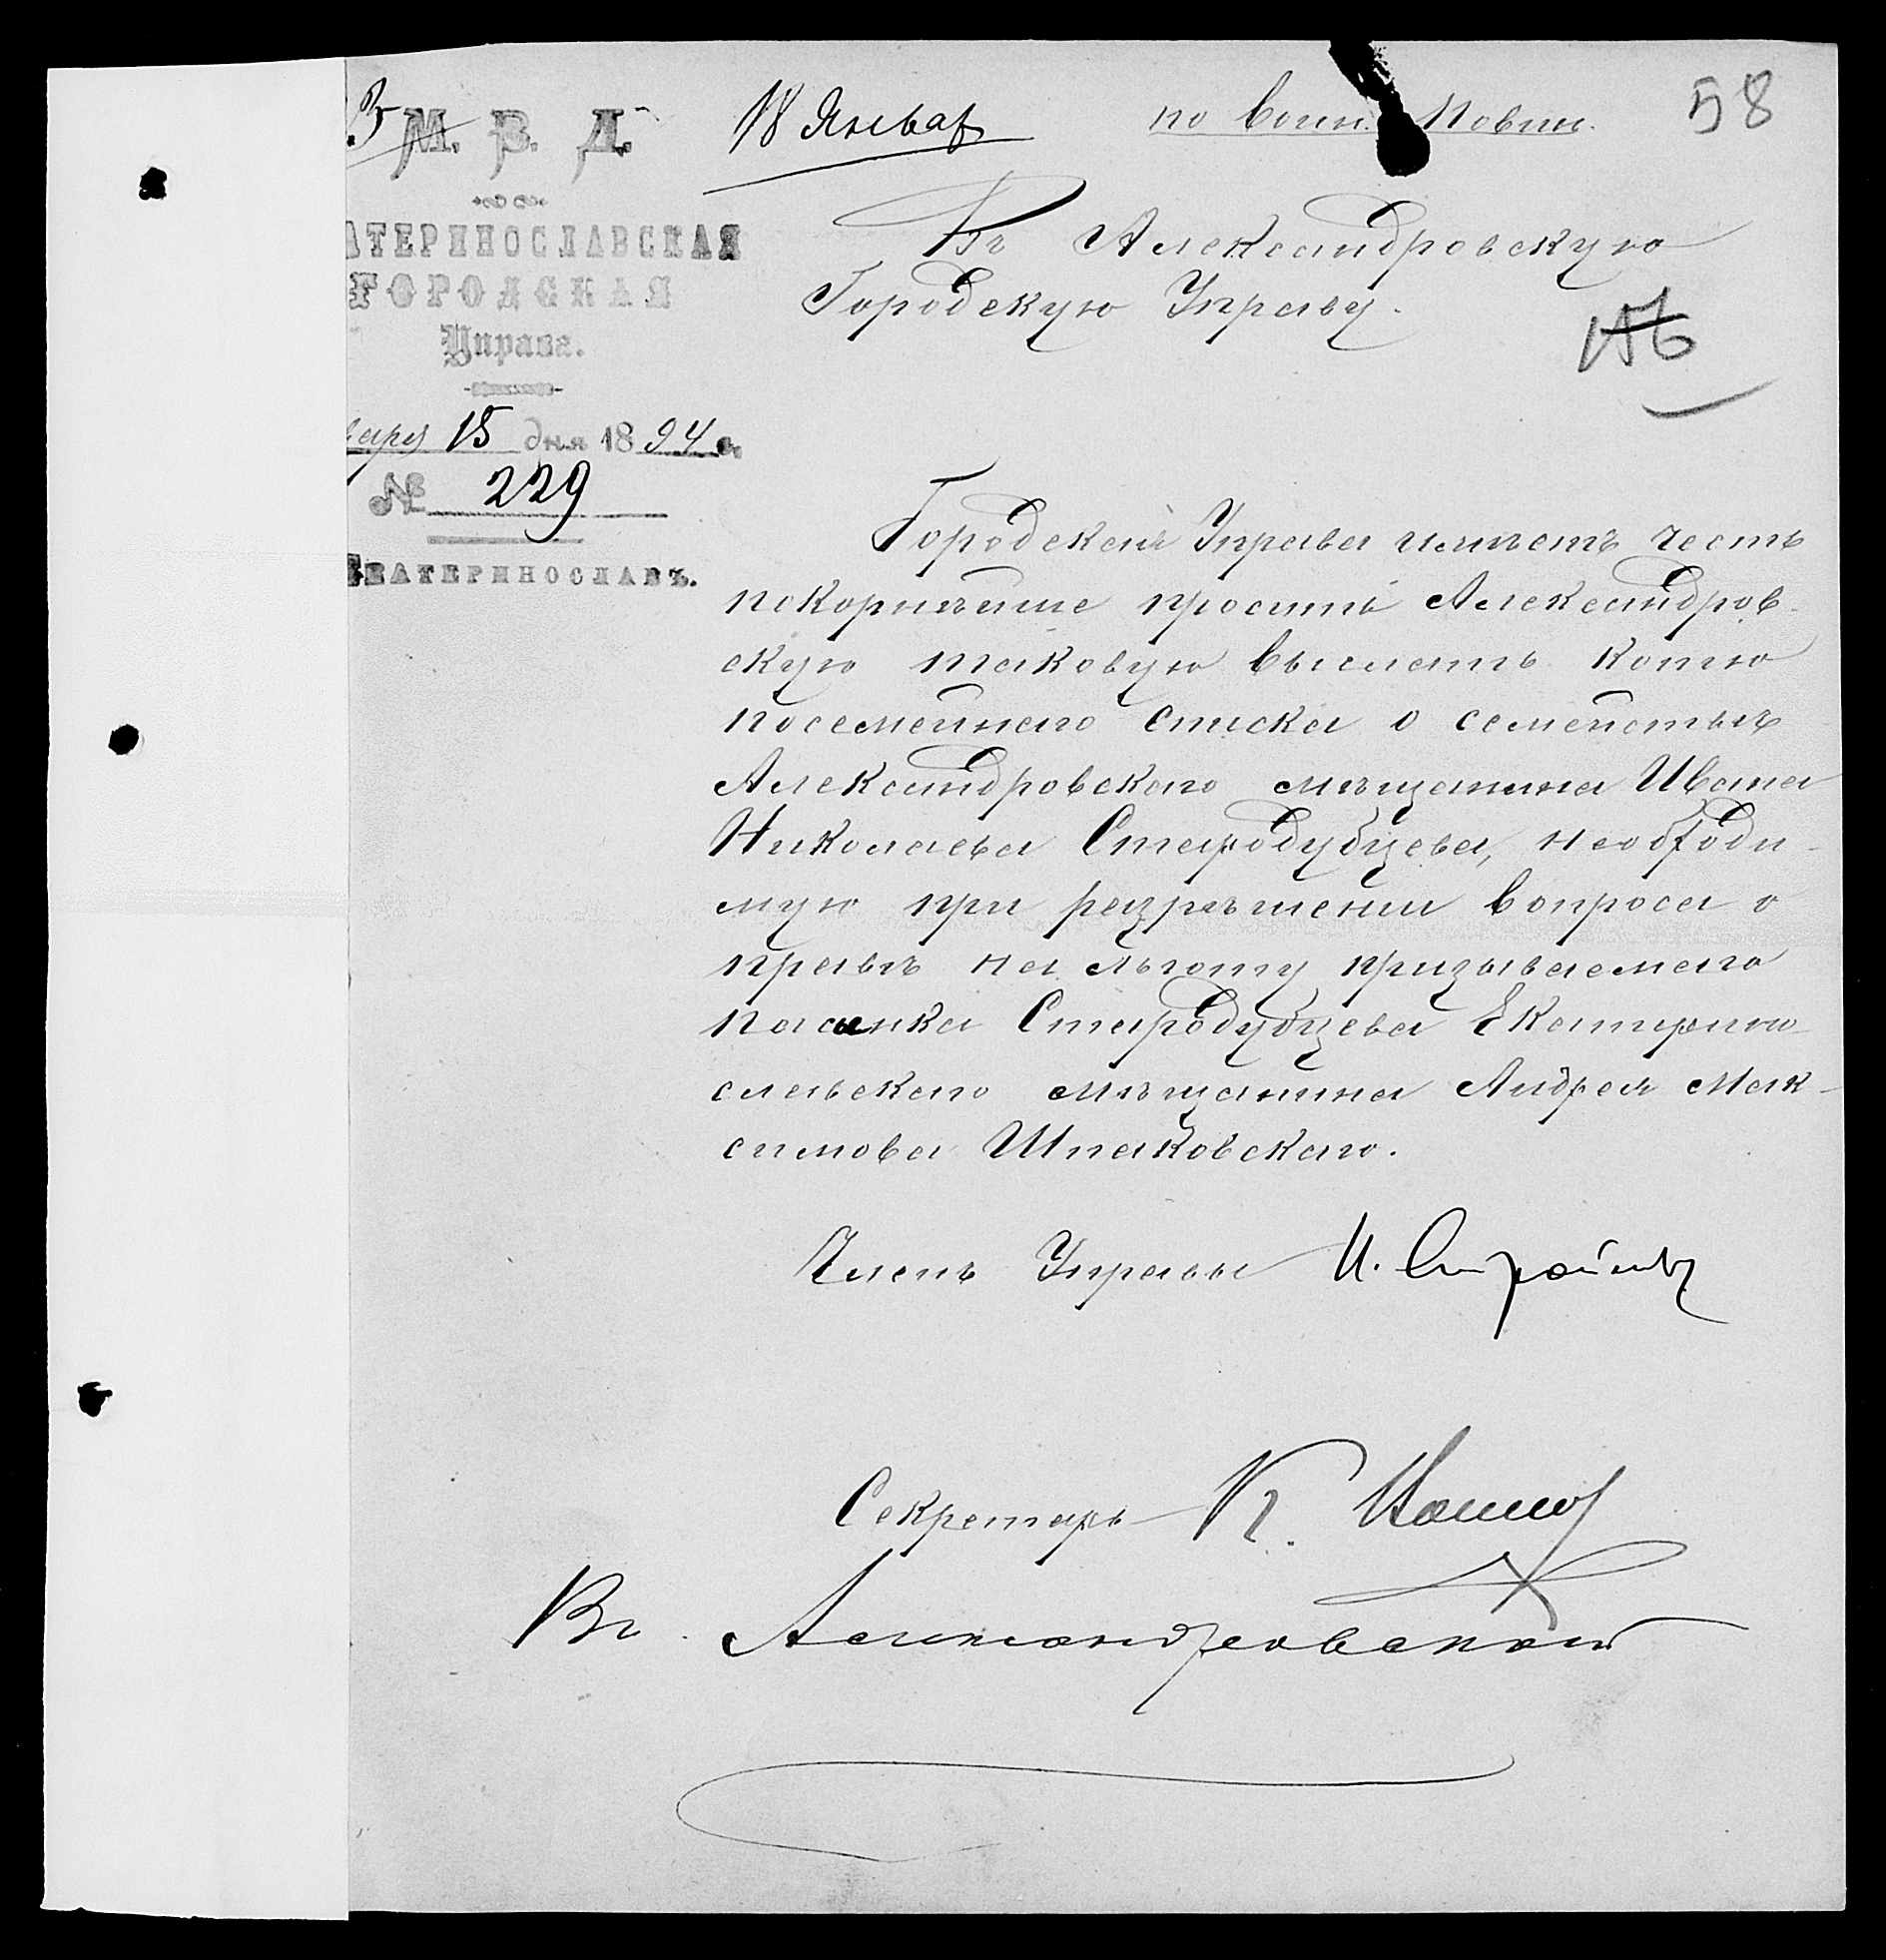 М. В. Д.
18 Январ
по воин. Повин.
58
АТЕРИНОСЛАВСКАЯ
ГОРОДСКАЯ
Управа.
варя 15 дня 1894 г.
№ 229
ЕКАТЕРИНОСЛАВЪ.
Въ Александровскую
Городскую Управу.
Городская Управа имѣетъ честь
покорнѣйше просить Александров-
скую таковую выслать копію
посемейнаго списка о семействѣ
Александровскаго мѣщанина Ивана
Николаева Стародубцева, необходи-
мую при разрѣшеніи вопроса о
правѣ на льготу призываемаго
пасынка Стародубцева Екатерино
славскаго мѣщанина Андрея Мак-
симова Шпаковскаго.
Членъ Управы И.
Секретарь К.
Въ Александровской